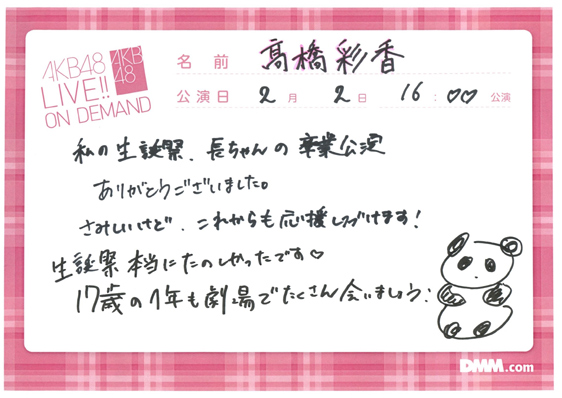 AKB48
LIVE!!
ON DEMAND
AKB
48
名前 髙橋彩香
公演日 2月2日 16:♡♡ 公演
私の生誕祭、長ちゃんの卒業公演
ありがとうございました。
さみしいけど、これからも応援しつづけます!
生誕祭本当にたのしかったです♡
17歳の1年も劇場でたくさん会いましょう:
DMM.com